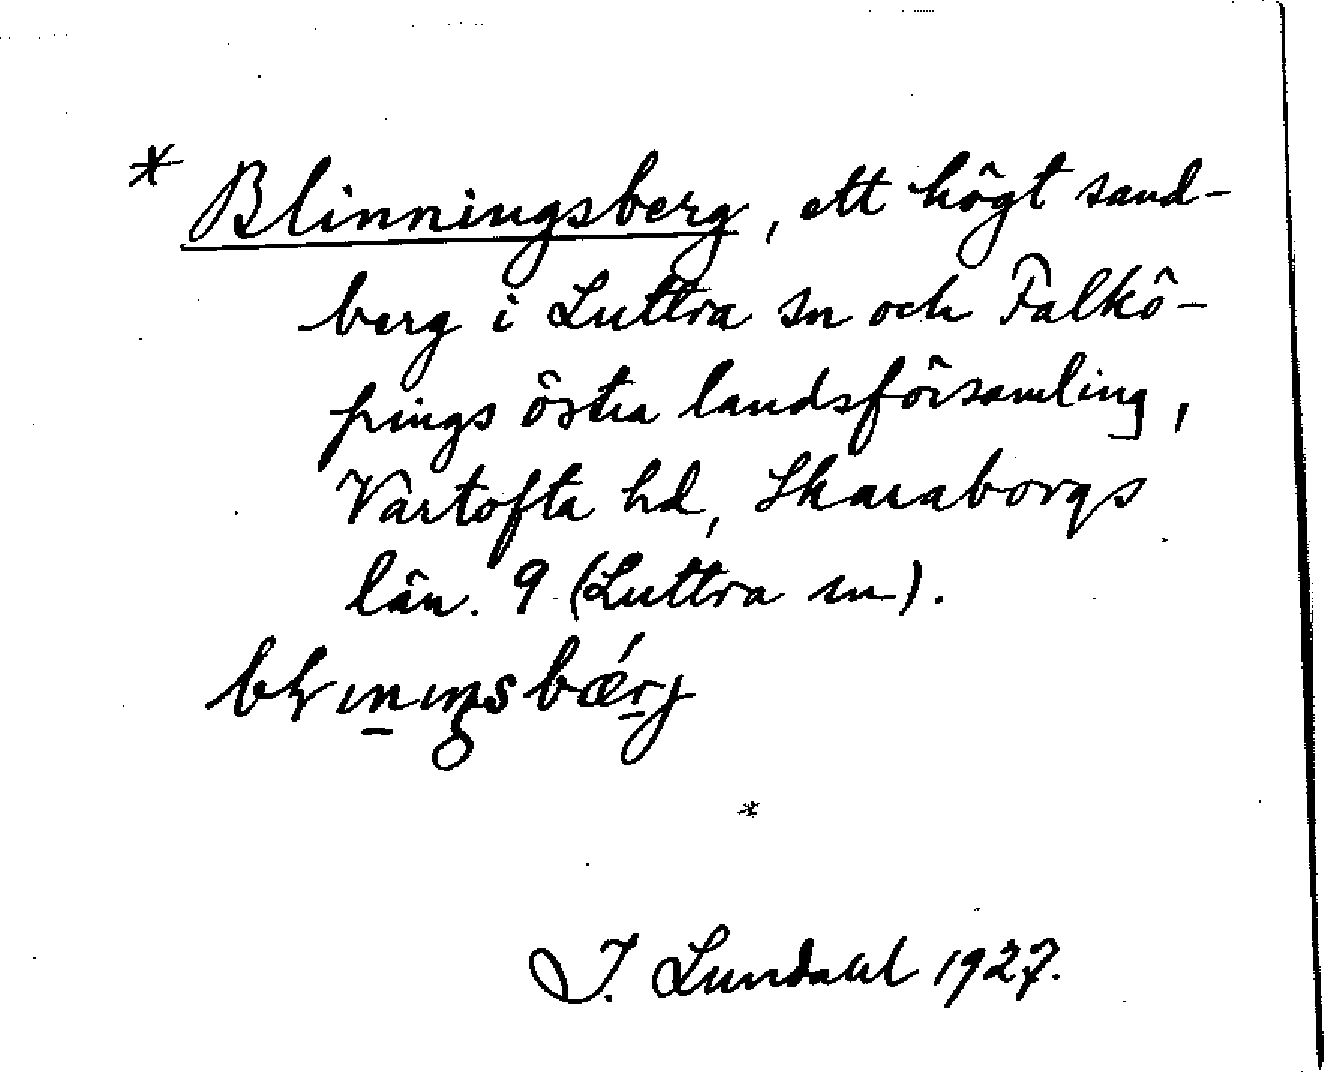 * Blinningsberg, ett högt sand-
berg i Luttra sn och Falkö-
pings östra landsförsamling,
Vartofta hd, Skaraborgs
län. 9 (Luttra sn).
*
I. Lundahl 1927.